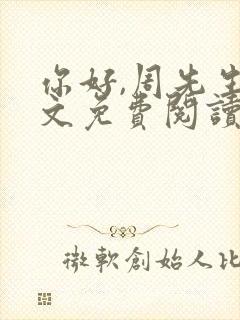 你好,周先生
文免費閱讀
微軟創始人比